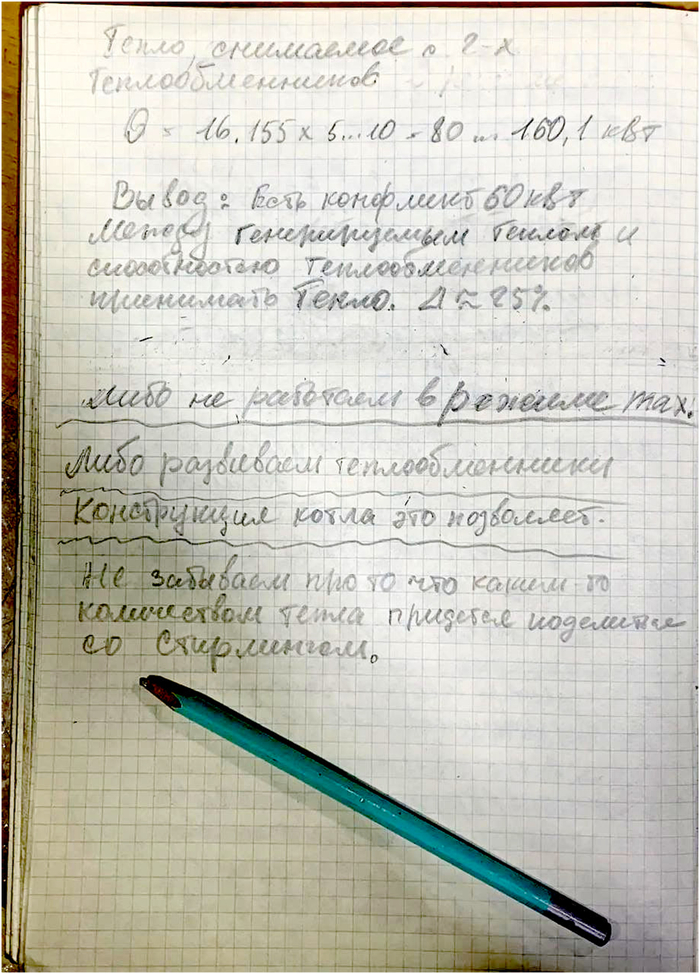 Тепло, снимаемое с 2-х
Теплообменников
Q = 16.155 x 5...10 = 80 ... 160,1 кВт
Вывод: Есть конфликт 60 кВт
между генерируемым теплом и
способностью теплообменников
принимать Тепло. Δ ≈ 25%
Либо не работаем в режиме max.
Либо развиваем теплообменники
Конструкция котла это позволяет.
Не забываем про то что каким-то
количеством тепла придется поделиться
со Стирлингом.